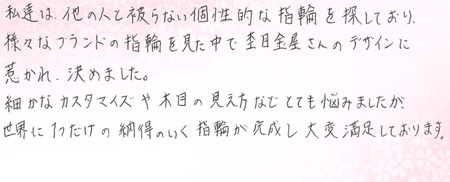 私達は、他の人と被らない個性的な指輪を探しており、
様々なブランドの指輪を見た中で杢目金屋さんのデザインに
惹かれ、決めました。
細かなカスタマイズや木目の見え方などとても悩みましたが、
世界に1つだけの納得のいく指輪が完成し大変満足しております。